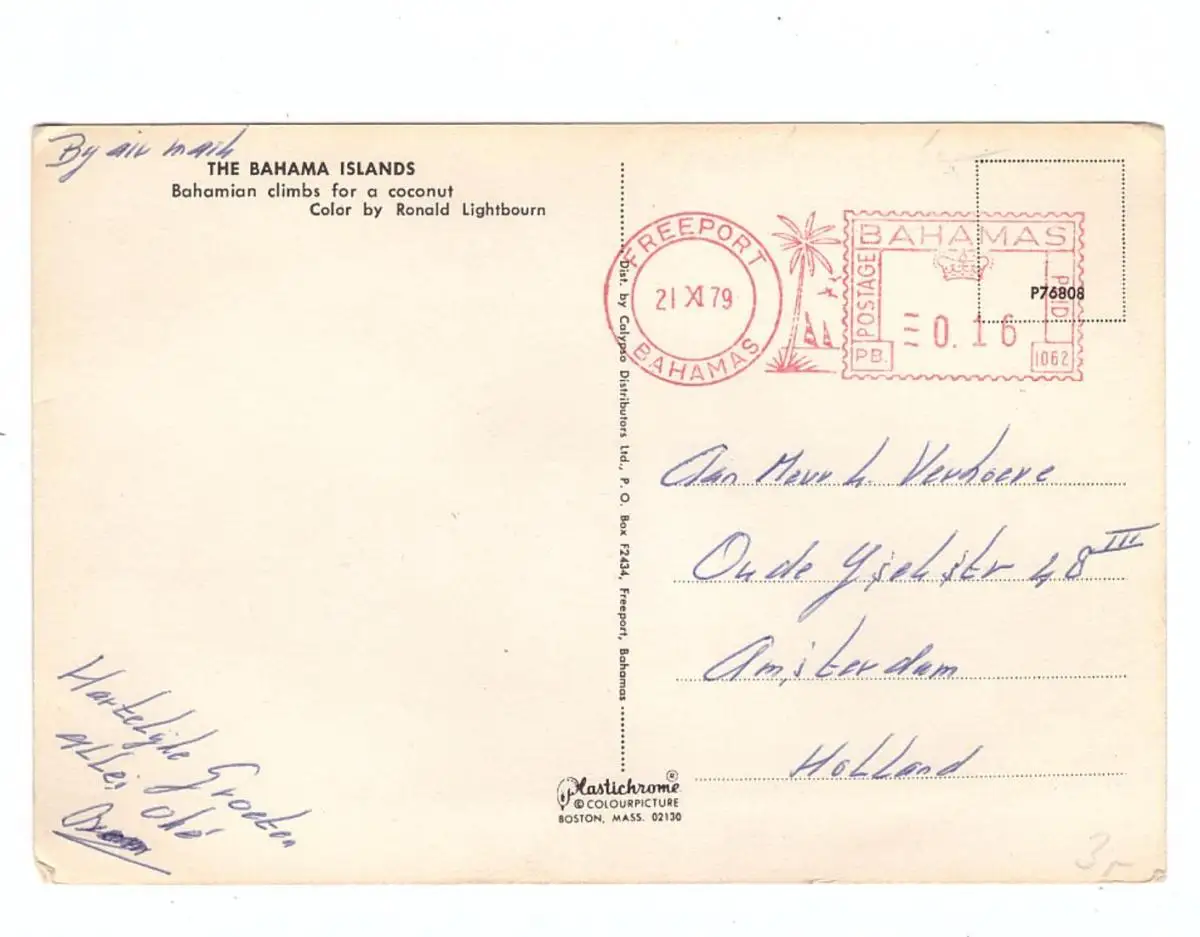 By air mail
THE BAHAMA ISLANDS
Bahamian climbs for a coconut
Color by Ronald Lightbourn
FREEPORT
21 XI 79
BAHAMAS
BAHAMAS
POSTAGE
PAID
0.16
PB.
1062
P76808
Dist. by Calypso Distributors Ltd., P. O. Box F2434, Freeport, Bahamas
Aan Mevr h. Verhoeve
Oude Yselstr 48 III
Amsterdam
Holland
Hartelijke Groeten
alles oké
Plastichrome ®
© COLOURPICTURE
BOSTON, MASS. 02130